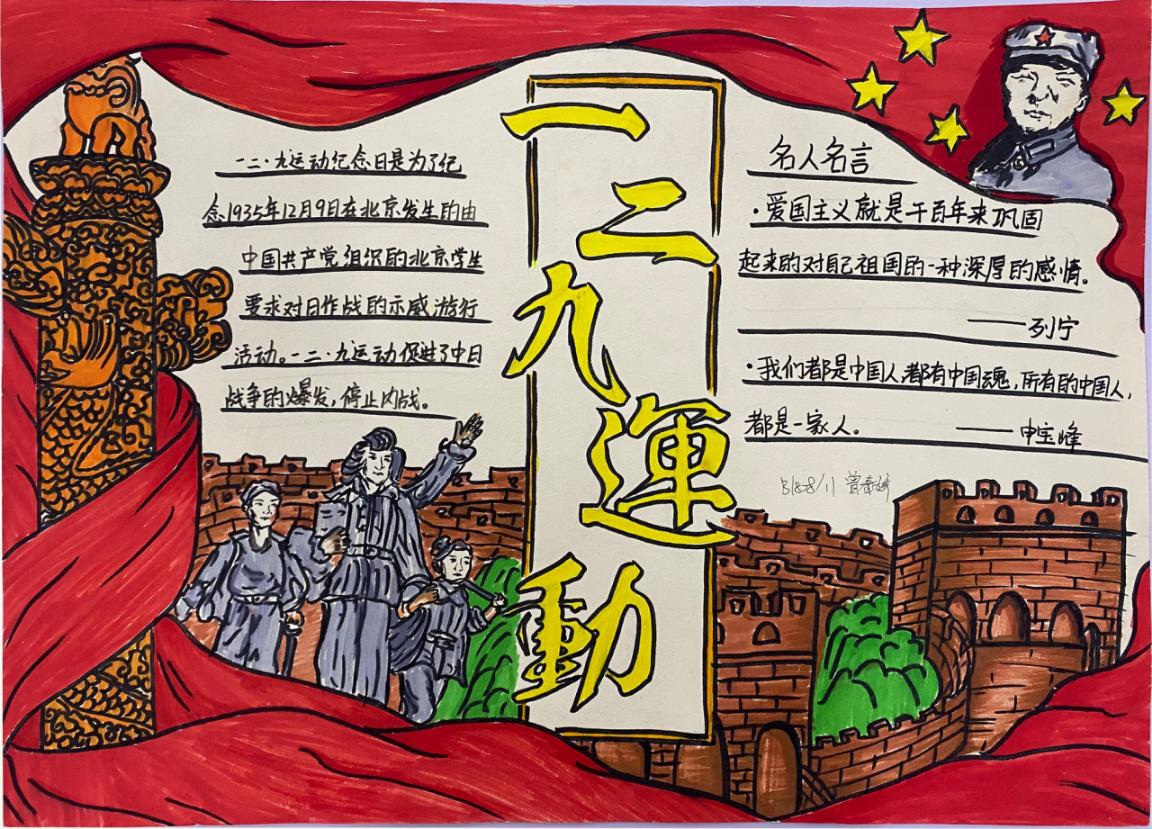 一二九運動
一二·九运动纪念日是为了纪
念1935年12月9日在北京发生的由
中国共产党组织的北京学生
要求对日作战的示威游行
活动。一二·九运动促进了中日
战争的爆发,停止内战。
名人名言
·爱国主义就是千百年来巩固
起来的对自己祖国的一种深厚的感情。
——列宁
·我们都是中国人,都有中国魂,所有的中国人,
都是一家人。 ——申宝峰